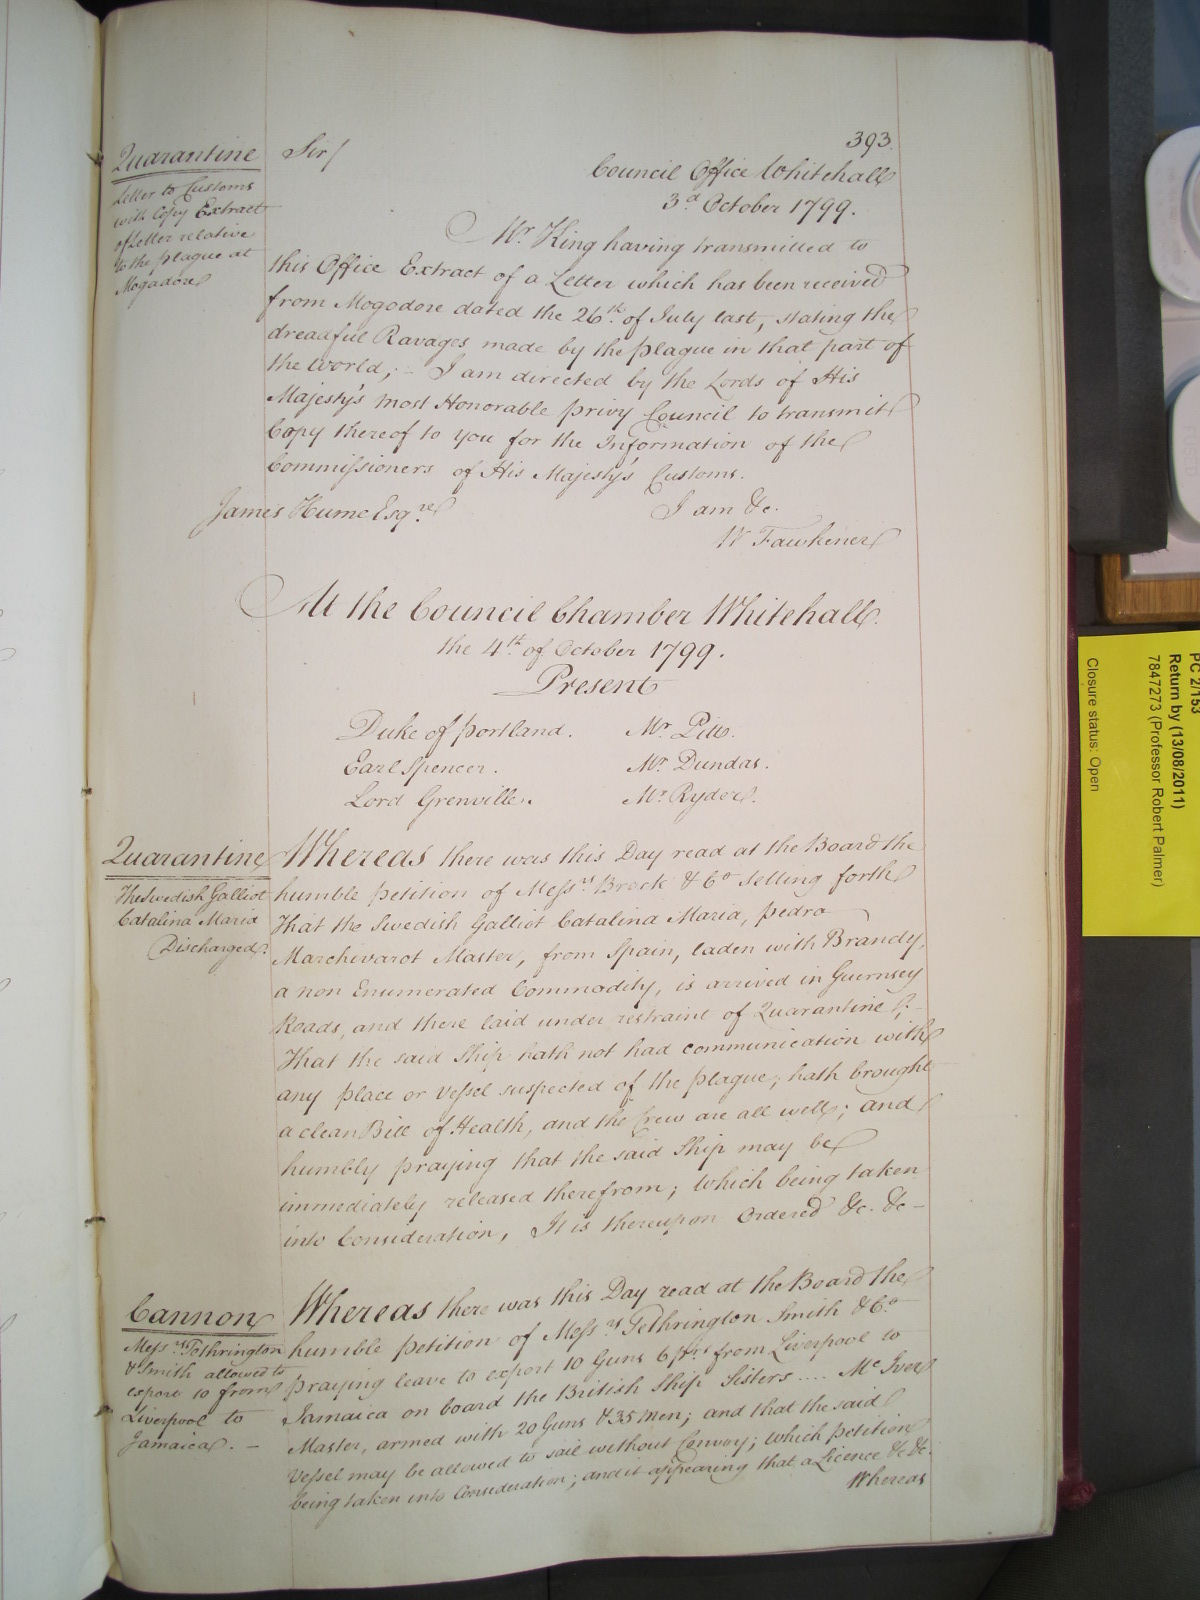 393.
Quarantine
Letter to Customs
with Copy Extract
of Letter relative
to the plague at
Mogadore
Sir/
Council Office Whitehall
3d October 1799.
Mr King having transmitted to
this Office Extract of a Letter which has been received
from Mogodore dated the 26th of July last, stating the
dreadful Ravages made by the plague in that part of
the World; - I am directed by the Lords of His
Majesty's most Honorable privy Council to transmit
Copy thereof to you for the Information of the
Commissioners of His Majesty's Customs.
James Hume Esqre
I am &c.
W Fawkener
At the Council Chamber Whitehall
the 4th of October 1799.
Present
Duke of portland. Mr Pitt.
Earl Spencer. Mr Dundas.
Lord Grenville. Mr Ryder.
Quarantine
The Swedish Galliot
Catalina Maria
Discharged.
Whereas there was this Day read at the Board the
humble petition of Messrs Brock & Co setting forth
That the Swedish Galliot Catalina Maria, pedro
Marchivarot Master, from Spain, laden with Brandy,
a non Enumerated Commodity, is arrived in Guernsey
Roads, and there laid under restraint of Quarantine;
That the said Ship hath not had communication with
any place or vessel suspected of the plague; hath brought
a clean Bill of Health, and the Crew are all well; and
humbly praying that the said Ship may be
immediately released therefrom; Which being taken
into Consideration, It is thereupon Ordered &c. &c -
Cannon
Messrs Tethrington
& Smith allowed to
export 10 from
Liverpool to
Jamaica. -
Whereas there was this Day read at the Board the
humble petition of Messrs Tethrington Smith & Co
praying leave to export 10 Guns 6 prs from Liverpool to
Jamaica on board the British Ship Sisters .... Mc Iver
Master, armed with 20 Guns & 35 Men; and that the said
Vessel may be allowed to sail without Convoy; Which petition
being taken into Consideration; and it appearing that a Licence &c &c.
Whereas
PC 2/153
Return by (13/08/2011)
7847273 (Professor Robert Palmer)
Closure status: Open